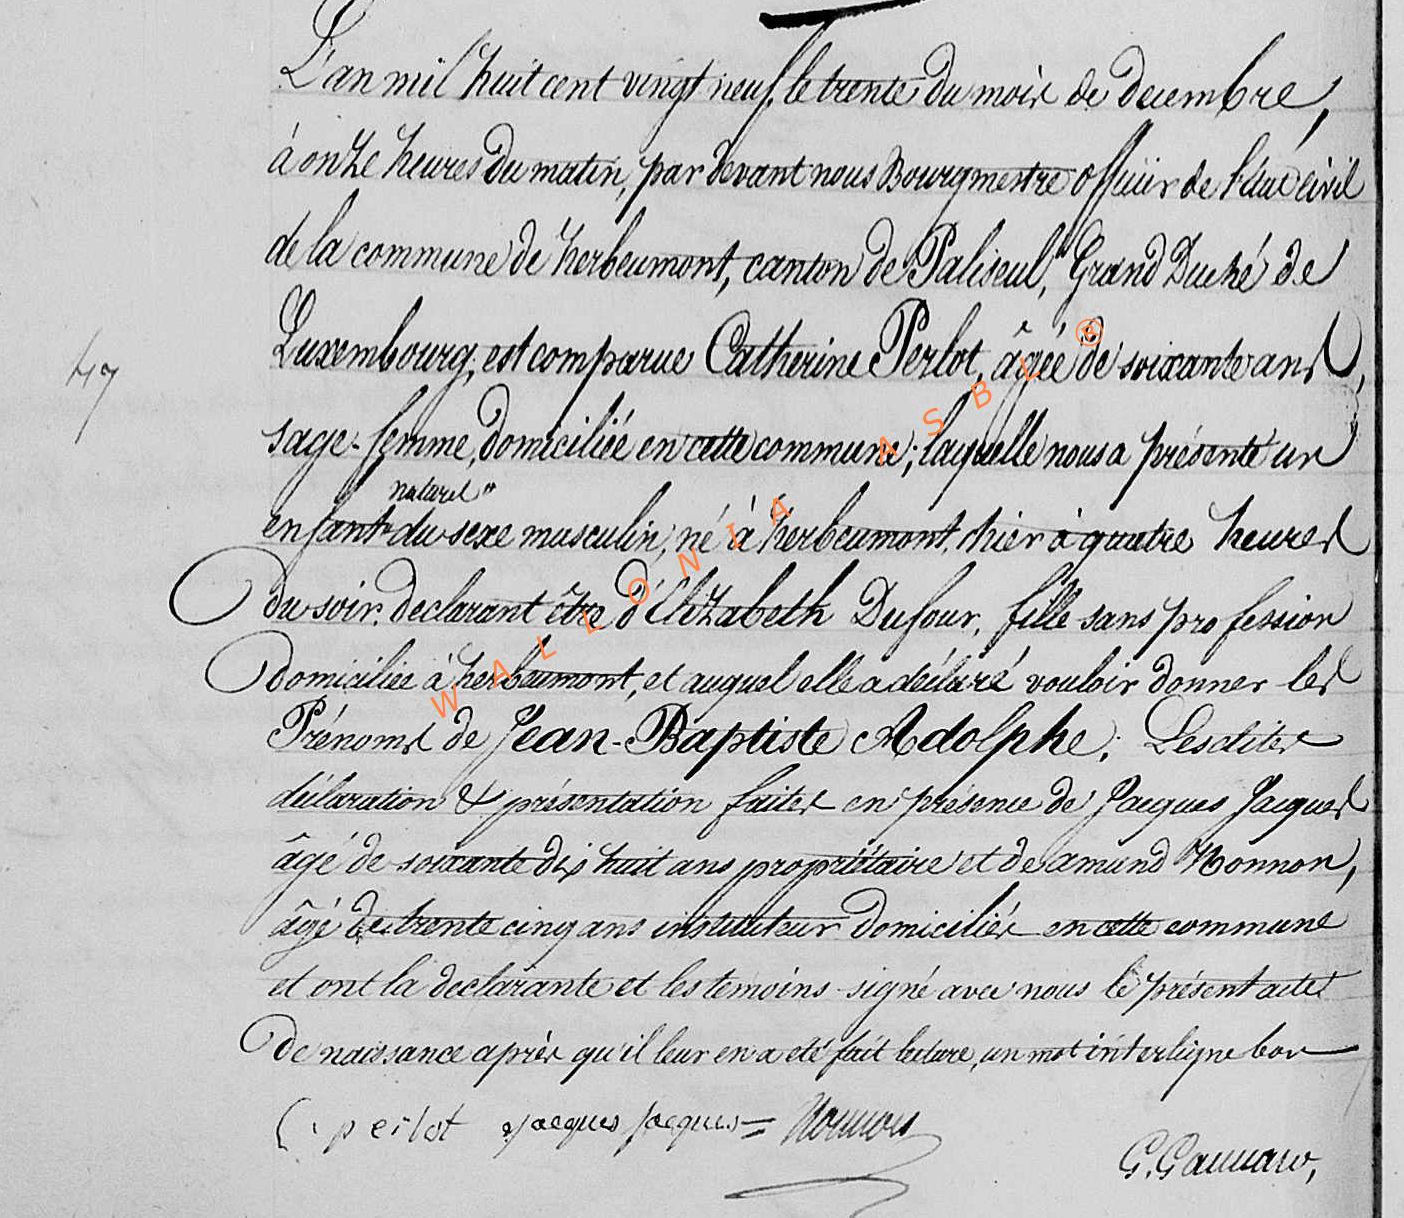 L'an mil huit cent vingt neuf, le trente du mois de decembre,
à onze heures du matin, par devant nous Bourgmestre officier de l'état civil
de la commune de herbeumont, canton de Paliseul, Grand Duché de
Luxembourg, est comparue Catherine Perlot, âgée de soixante ans,
47
sage-femme, domiciliée en cette commune; laquelle nous a présenté un
naturel
enfant du sexe masculin, né à herbeumont, hier à quatre heures
du soir, declarant être d'Elizabeth Dufour, fille sans profession
domiciliée à herbeumont, et auquel elle a déclaré vouloir donner les
Prénoms de Jean-Baptiste Adolphe; Lesdites
déclaration & présentation faites en présence de Jacques Jacques
âgé de soixante dix huit ans propriétaire et de amand Nonnon,
âgé de trente cinq ans instituteur domiciliés en cette commune
et ont la declarante et les temoins signé avec nous le présent acte
de naissance après qu'il leur en a eté fait lecture, un mot interligne bon
C. perlot Jacques Jacques = Nonnon
WALLONIA ASBL ®